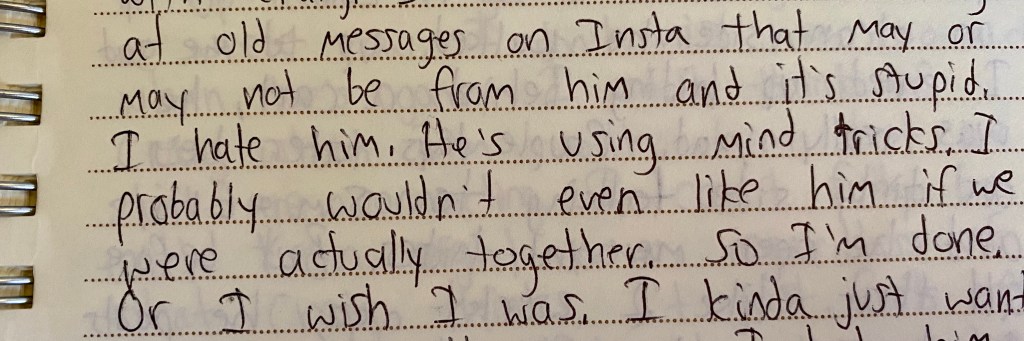 at old messages on Insta that may or
may not be from him and it's stupid.
I hate him. He's using mind tricks. I
probably wouldn't even like him if we
were actually together. So I'm done.
Or I wish I was. I kinda just want
him